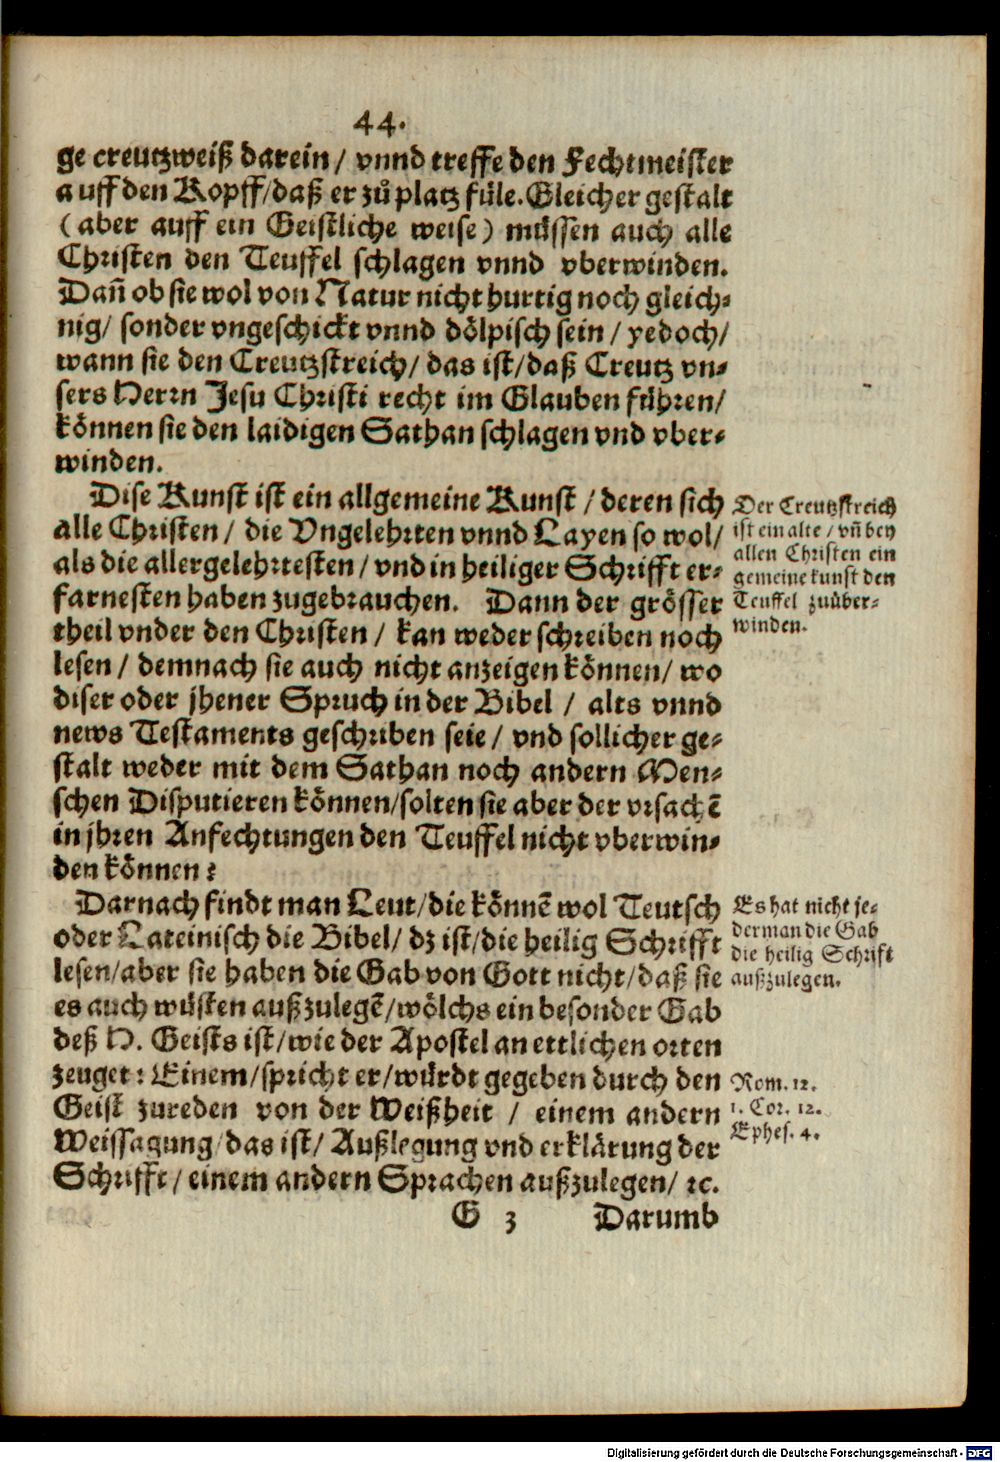 44.
ge creutzweiß darein / vnnd treffe den Fechtmeister
auff den Kopff / daß er zů platz füle. Gleicher gestalt
( aber auff ein Geistliche weise ) müssen auch alle
Christen den Teuffel schlagen vnnd vberwinden.
Dañ ob sie wol von Natur nicht hurtig noch gleich-
nig / sonder vngeschickt vnnd dölpisch sein / yedoch /
wann sie den Creutzstreich / das ist / daß Creutz vn-
sers Herrn Jesu Christi recht im Glauben führen /
können sie den laidigen Sathan schlagen vnd vber-
winden.
Dise Kunst ist ein allgemeine Kunst / deren sich
alle Christen / die Vngelehrten vnnd Layen so wol /
als die allergelehrtesten / vnd in heiliger Schrifft er-
farnesten haben zugebrauchen. Dann der grösser
theil vnder den Christen / kan weder schreiben noch
lesen / demnach sie auch nicht anzeigen können / wo
diser oder jhener Spruch in der Bibel / alts vnnd
news Testaments geschriben seie / vnd sollicher ge-
stalt weder mit dem Sathan noch andern Men-
schen Disputieren können / solten sie aber der vrsachẽ
in jhren Anfechtungen den Teuffel nicht vberwin-
den können?
Der Creutzstreich
ist ein alte / vñ bey
allen Christen ein
gemeine kunst den
Teuffel zuüber-
winden.
Darnach findt man Leut / die könnẽ wol Teutsch
oder Lateinisch die Bibel / dz ist / die heilig Schrifft
lesen / aber sie haben die Gab von Gott nicht / daß sie
es auch wüsten außzulegẽ / wölchs ein besonder Gab
deß H. Geists ist / wie der Apostel an ettlichen orten
zeuget: Einem / spricht er / würdt gegeben durch den
Geist zureden von der Weißheit / einem andern
Weissagung / das ist / Außlegung vnd erklärung der
Schrifft / einem andern Sprachen außzulegen / ꝛc.
Es hat nicht je-
derman die Gab
die heilig Schrift
außzulegen.
Rom. 12.
1. Cor. 12.
Ephes. 4.
G 3 Darumb
Digitalisierung gefördert durch die Deutsche Forschungsgemeinschaft - DFG